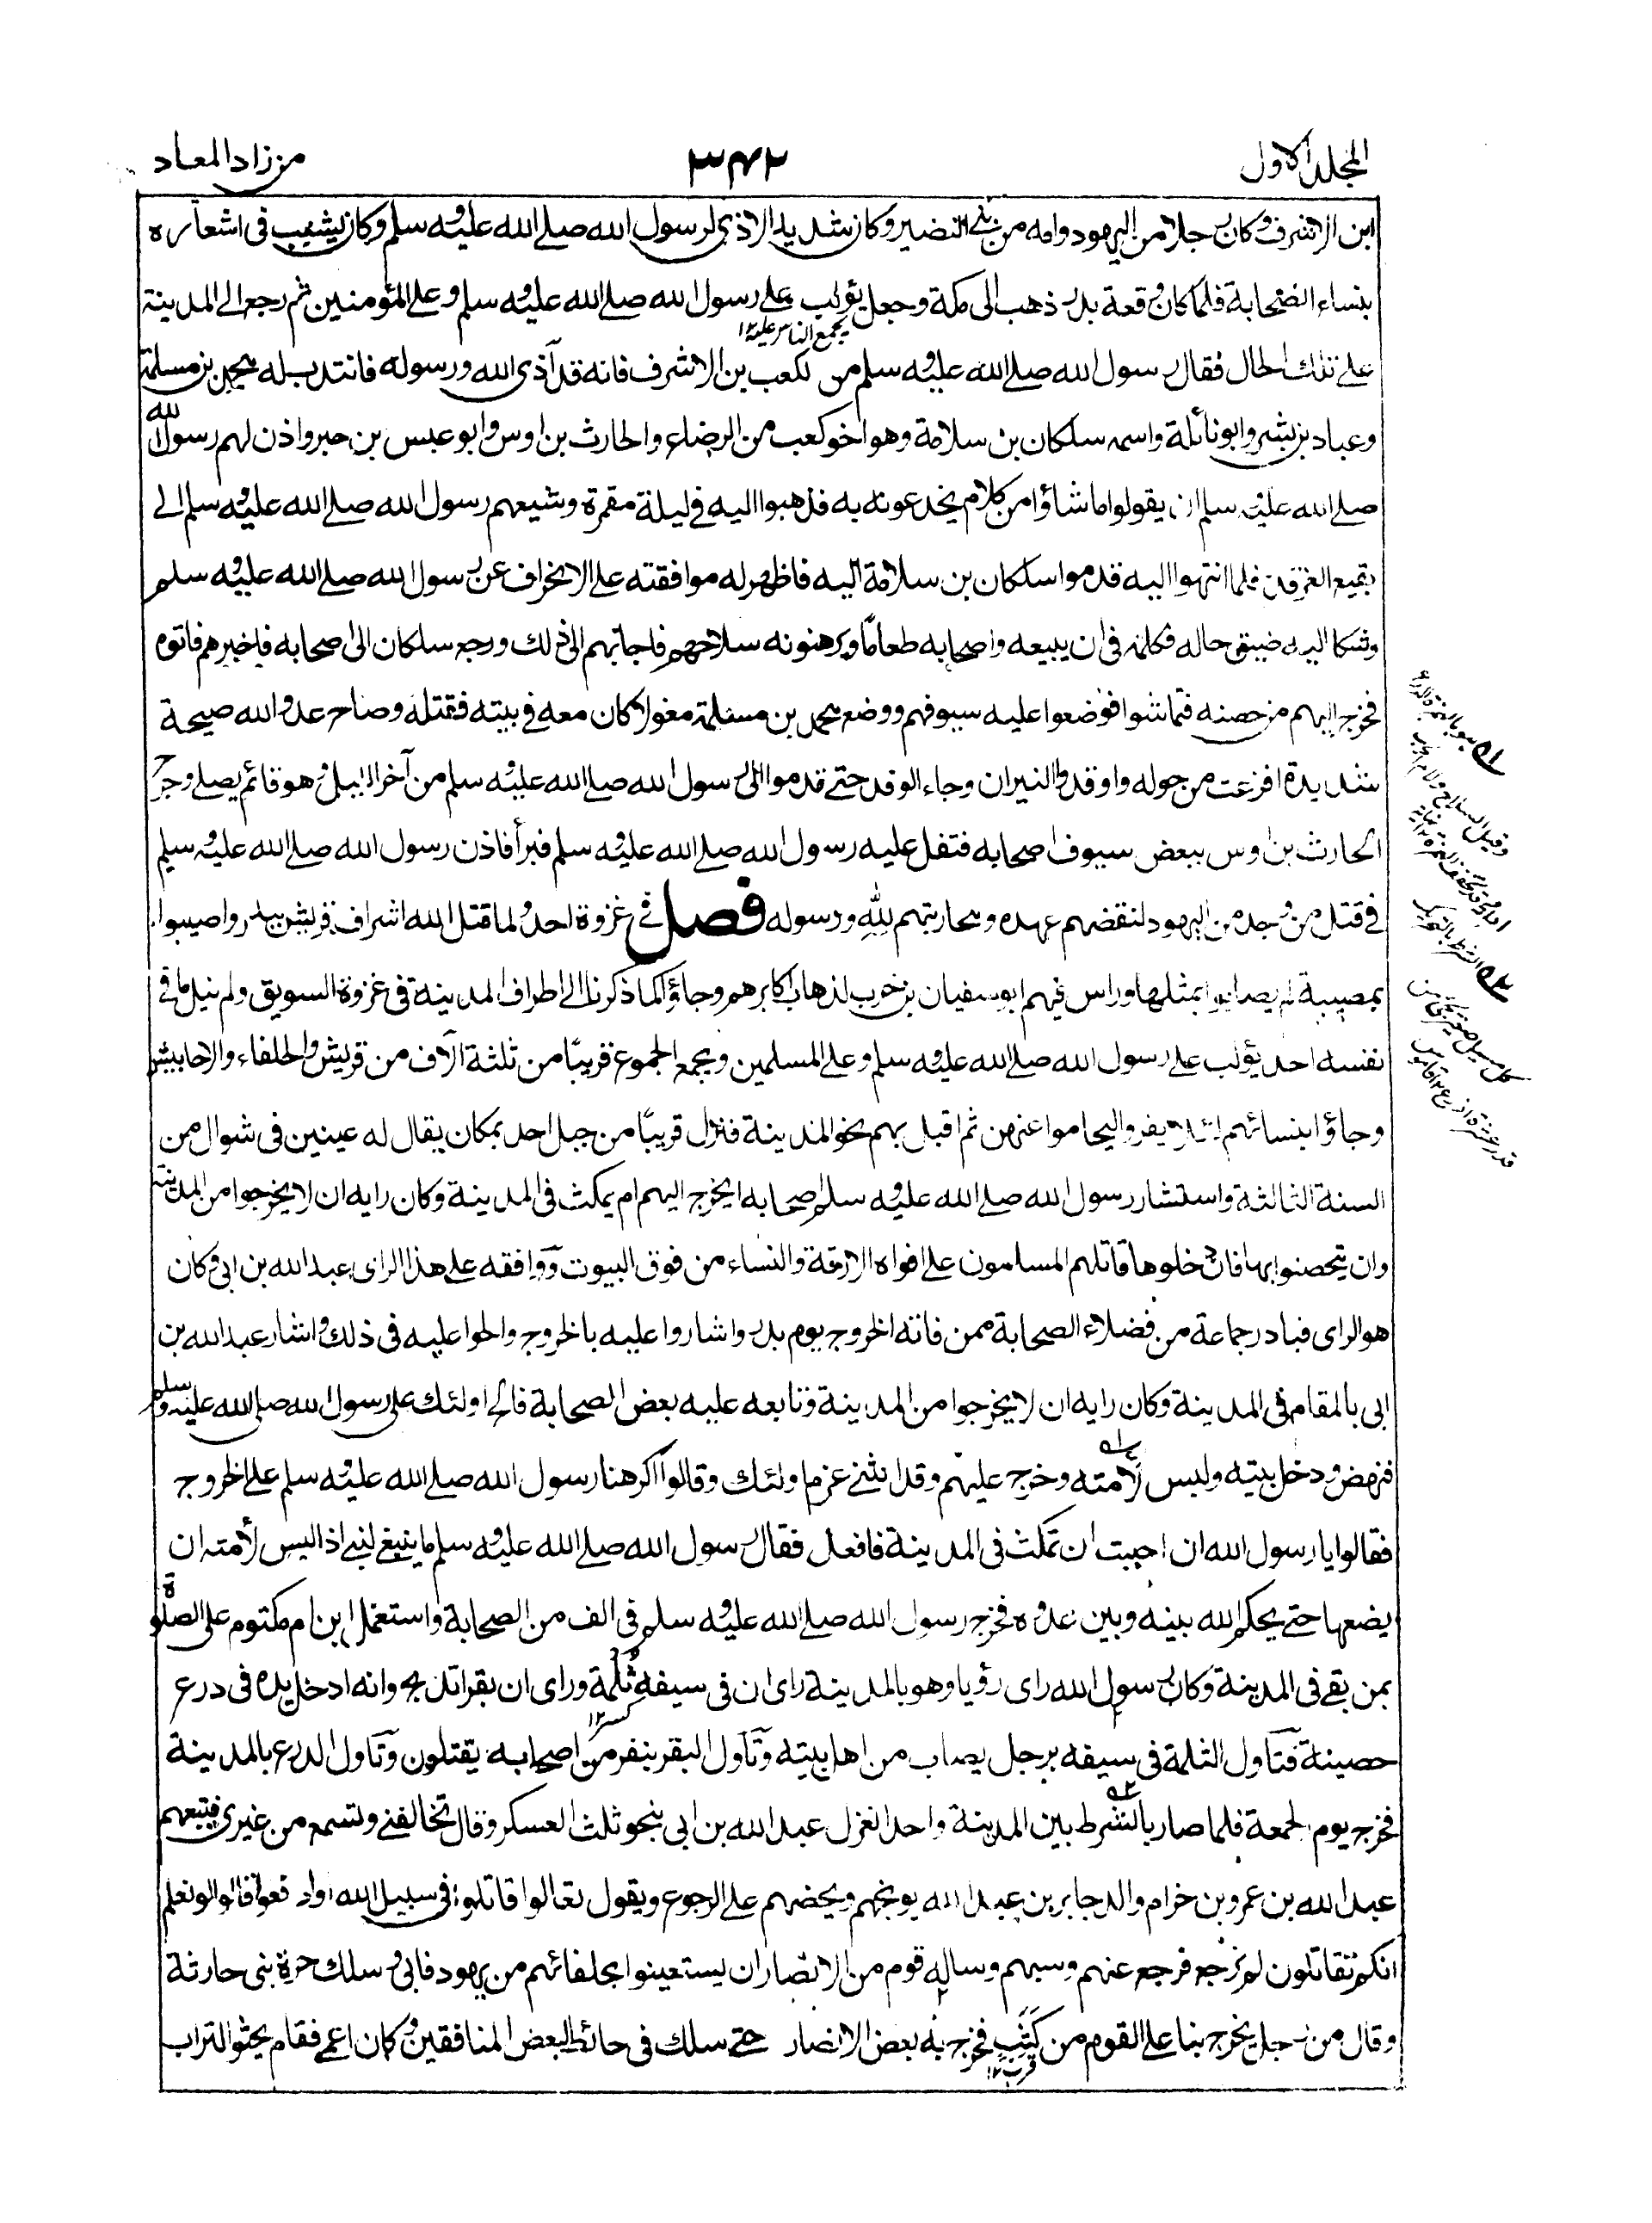 المجلد الاول
٣٤٢
من زاد المعاد
ابن الاشرف وكان رجلا من اليهود وامه من بني النضير وكان شديد الاذى لرسول الله صلے الله عليه وسلم وكان يشبب فى اشعاره
بنساء الصحابة فلما كان وقعة بدر ذهب الى مكة وجعل يؤلب علے رسول الله صلے الله عليه وسلم وعلے المؤمنين ثم رجع الى المدينة
يجمع الناس عليه ١٢
علے تلك الحال فقال رسول الله صلے الله عليه وسلم من لكعب بن الاشرف فانه قد آذى الله ورسوله فانتدب له محمد بن مسلمة
وعباد بن بشر وابو نائلة واسمه سلكان بن سلامة وهو اخو كعب من الرضاع والحارث بن اوس وابو عبس بن جبر واذن لهم رسول الله
صلے الله عليه وسلم ان يقولوا ما شاؤا من كلام يخدعونه به فذهبوا اليه فى ليلة مقمرة وشيعهم رسول الله صلے الله عليه وسلم الى
بقيع الغرقد فلما انتهوا اليه قدموا سلكان بن سلامة اليه فاظهر له موافقته على الانحراف عن رسول الله صلے الله عليه وسلم
وشكا اليه ضيق حاله فكلمه فى ان يبيعه واصحابه طعامًا ويرهنونه سلاحهم فاجابهم الى ذلك ورجع سلكان الى اصحابه فاخبرهم فاتوه
فخرج اليهم من حصنه فتماشوا فوضعوا عليه سيوفهم ووضع محمد بن مسلمة مغولا كان معه فى بيته فقتله وصاح عدو الله صيحة
شديدة افزعت من حوله واوقدوا النيران وجاء الوفد حتے قدموا الى رسول الله صلے الله عليه وسلم من آخر الليل وهو قائم يصلے وجرح
الحارث بن اوس ببعض سيوف اصحابه فتفل عليه رسول الله صلے الله عليه وسلم فبرأ فاذن رسول الله صلے الله عليه وسلم
فى قتل من وجد من اليهود لنقضهم عهده ومحاربتهم لله ورسوله فصل فى غزوة احد ولما قتل الله اشراف قريش ببدر واصيبوا
بمصيبة لم يصابوا بمثلها وراس فيهم ابو سفيان بن حرب لذهاب اكابرهم وجاؤا كما ذكرنا الى اطراف المدينة فى غزوة السويق ولم ينل ما فى
نفسه اخذ يؤلب على رسول الله صلے الله عليه وسلم وعلے المسلمين ويجمع الجموع قريبًا من ثلثة آلاف من قريش والحلفاء والاحابيش
وجاؤا بنسائهم لئلا يفروا ليحاموا عنهن ثم اقبل بهم نحو المدينة فنزل قريبًا من جبل احد بمكان يقال له عينين فى شوال من
السنة الثالثة واستشار رسول الله صلے الله عليه وسلم اصحابه ايخرج اليهم ام يمكث فى المدينة وكان رايه ان لا يخرجوا من المدينة
وان يتحصنوا بها فان دخلوها قاتلهم المسلمون على افواه الازقة والنساء من فوق البيوت ووافقه على هذا الراى عبد الله بن ابى وكان
هو الراى فبادر جماعة من فضلاء الصحابة ممن فاته الخروج يوم بدر واشاروا عليه بالخروج والحوا عليه فى ذلك واشار عبد الله بن
ابى بالمقام فى المدينة وكان رايه ان لا يخرجوا من المدينة وتابعه عليه بعض الصحابة فالح اولئك على رسول الله صلى الله عليه وسلم
فنهض ودخل بيته ولبس لأمته وخرج عليهم وقد انثنى عزم اولئك وقالوا اكرهنا رسول الله صلے الله عليه وسلم على الخروج
فقالوا يا رسول الله ان احببت ان تمكث فى المدينة فافعل فقال رسول الله صلے الله عليه وسلم ما ينبغى لنبى اذا لبس لأمته ان
يضعها حتے يحكم الله بينه وبين عدوه فخرج رسول الله صلے الله عليه وسلم فى الف من الصحابة واستعمل ابن ام مكتوم على الصلوة
بمن بقے فى المدينة وكان رسول الله راى رؤيا وهو بالمدينة راى ان فى سيفه ثُلْمة وراى ان بقرا تذبح وانه ادخل يده فى درع
كسر ١٢
حصينة فتاول الثلمة فى سيفه برجل يصاب من اهل بيته وتاول البقر بنفر من اصحابه يقتلون وتاول الدرع بالمدينة
فخرج يوم الجمعة فلما صار بالشرط بين المدينة واحد انعزل عبد الله بن ابى بنحو ثلث العسكر وقال تخالفنى وتسمع من غيرى فتبعهم
عبد الله بن عمرو بن حرام والد جابر بن عبد الله يوبخهم ويحضهم على الرجوع ويقول تعالوا قاتلوا فى سبيل الله او ادفعوا قالوا لو نعلم
انكم تقاتلون لم نرجع فرجع عنهم وسبهم وساله قوم من الانصار ان يستعينوا بحلفائهم من يهود فابى وسلك حرة بنى حارثة
وقال من رجل يخرج بنا على القوم من كَثَبٍ فخرج به بعض الانصار حتے سلك فى حائط لبعض المنافقين وكان اعمى فقام يحثو التراب
قرب ١٢